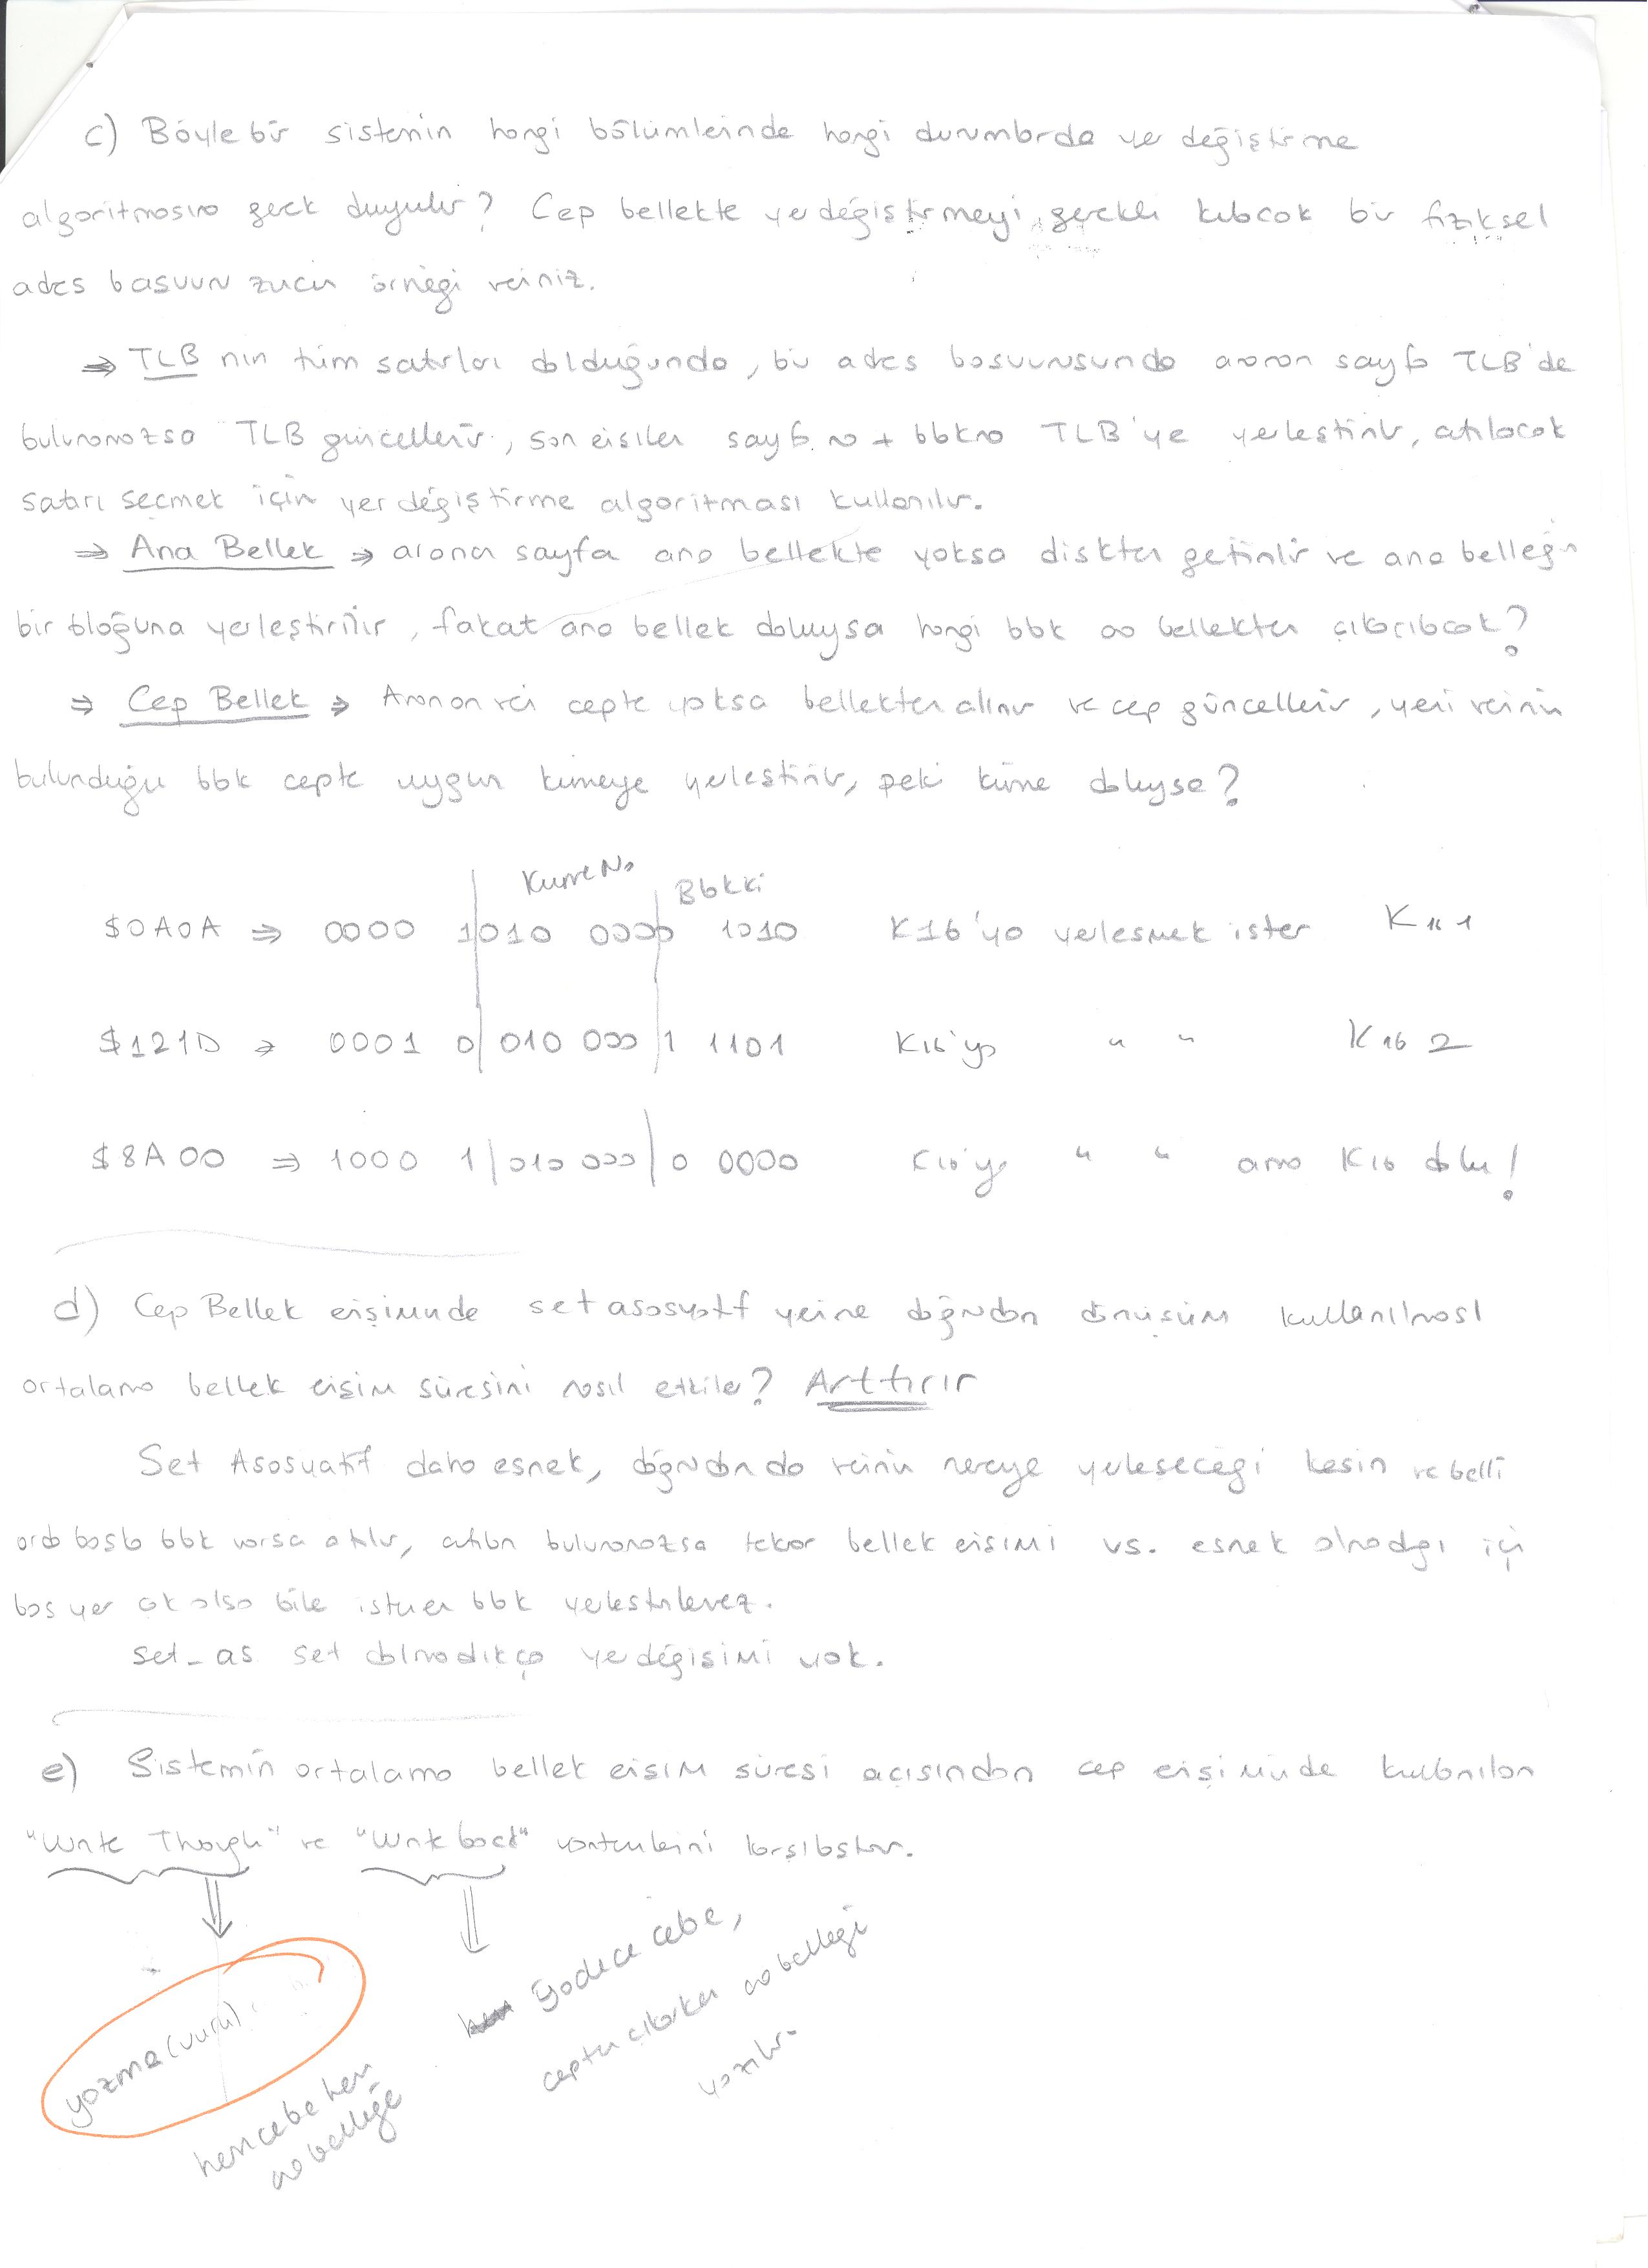 c) Böyle bir sistemin hangi bölümlerinde hangi durumlarda yer değiştirme
algoritmasına gerek duyulur? Cep bellekte yer değiştirmeyi gerekli kılacak bir fiziksel
adres başvuru zinciri örneği veriniz.
⇒ TLB nin tüm satırları dolduğunda, bir adres başvurusunda aranan sayfa TLB'de
bulunamazsa TLB güncellenir, son erişilen sayfa no + blok no TLB'ye yerleştirilir, atılacak
satırı seçmek için yer değiştirme algoritması kullanılır.
⇒ Ana Bellek ⇒ aranan sayfa ana bellekte yoksa diskten getirilir ve ana belleğin
bir bloğuna yerleştirilir, fakat ana bellek doluysa hangi blok ana bellekten çıkarılacak?
⇒ Cep Bellek ⇒ Aranan veri cepte yoksa bellekten alınır ve cep güncellenir, yeni verinin
bulunduğu blok cepte uygun kümeye yerleştirilir, peki küme doluysa?
Kume No Blokki
$0A0A ⇒ 0000 1010 0000 1010 K16'ya yerleşmek ister K16 1
$121D → 0001 0 010 000 1 1101 K16'ya " " K16 2
$8A00 ⇒ 1000 1 010 000 0 0000 K16'ya " " ama K16 dolu!
d) Cep Bellek erişiminde set asosyatif yerine doğrudan dönüşüm kullanılması
ortalama bellek erişim süresini nasıl etkiler? Arttırır
Set Asosyatif daha esnek, doğrudan da verinin nereye yerleşeceği kesin ve belli
orda başka blok varsa atılır, atılan bulunamazsa tekrar bellek erişimi vs. esnek olmadığı için
boş yer çok olsa bile istenen blok yerleştirilemez.
set_as set dolmadıkça yer değişimi yok.
e) Sistemin ortalama bellek erişim süresi açısından cep erişiminde kullanılan
"Write Through" ve "Write back" yöntemlerini karşılaştır.
yazma (vuru)
hem cebe hem
ana belleğe
Sadece cebe,
cepten çıkarken ana belleği
yazılır.